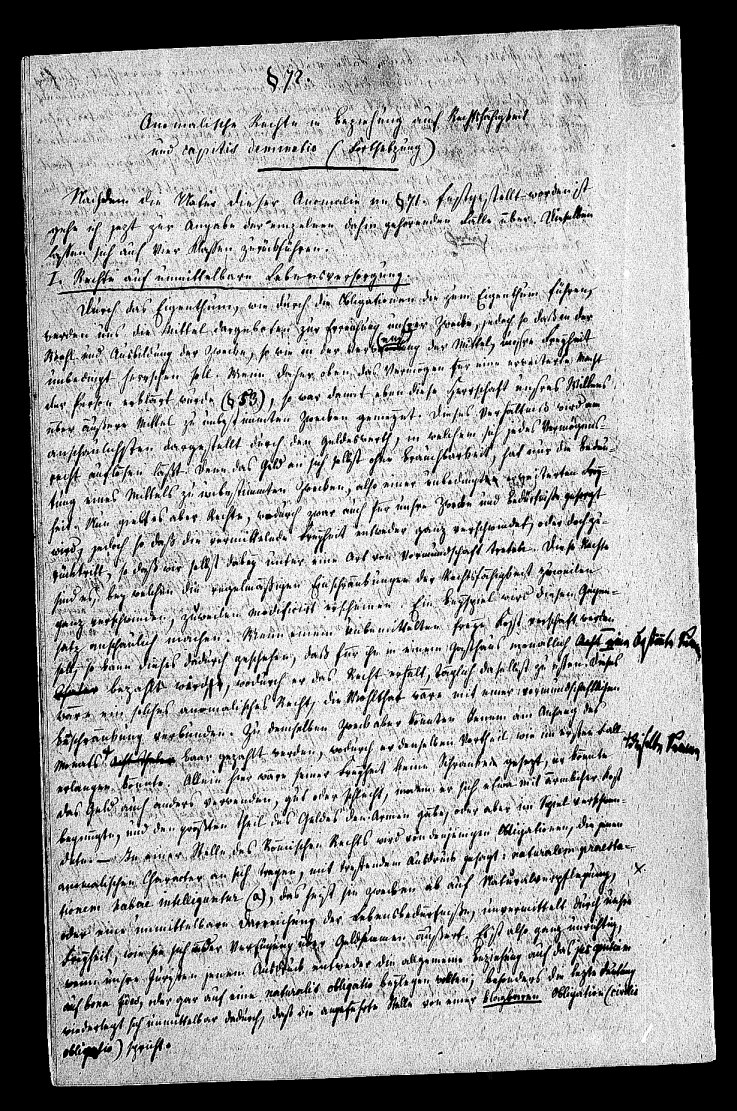 § 72.
Anomalische Rechte in Beziehung auf Rechtsfähigkeit
und capitis deminutio (Fortsetzung)
Nachdem die Natur dieser Anomalie im § 71. festgestellt worden ist
gehe ich jetzt zur Angabe der einzelnen dahin gehörenden Fälle über. Dieselben
lassen sich auf vier Klassen zurückführen.
I. Rechte auf unmittelbare Lebensversorgung.
Durch das Eigenthum, wie durch die Obligationen die zum Eigenthum führen,
werden uns die Mittel dargeboten zur Erreichung unsrer Zwecke, jedoch so daß in der
Wahl und Ausbildung der Zwecke, so wie in der Verwendung der Mittel, unsre Freyheit
unbedingt herrschen soll. Wenn daher oben das Vermögen für eine erweiterte Macht
der Person erklärt wurde (§ 53), so war damit eben diese Herrschaft unsres Willens
über äußere Mittel zu unbestimmten Zwecken gemeynt. Dieses Verhältniß wird am
anschaulichsten dargestellt durch den Geldeswerth, in welchem sich jedes Vermögens-
recht auflösen läßt. Denn das Geld an sich selbst ohne Brauchbarkeit, hat nur die Bedeu-
tung eines Mittels zu unbestimmten Zwecken, also einer unbedingten erweiterten Frey-
heit. Nun giebt es aber Rechte, wodurch zwar auch für unsre Zwecke und Bedürfnisse gesorgt
wird, jedoch so daß die vermittelnde Freyheit entweder ganz verschwindet, oder doch zu-
rücktritt, so daß wir selbst dabey unter eine Art von Vormundschaft treten. Diese Rechte
sind es, bey welchen die regelmäßigen Einschränkungen der Rechtsfähigkeit zuweilen
ganz verschwinden, zuweilen modificirt erscheinen. Ein Beyspiel wird diesen Gegen-
satz anschaulich machen. Wenn einem Unbemittelten freye Kost verschafft werden
soll, so kann dieses dadurch geschehen, daß für ihn in einem Gasthaus monatlich eine bestimmte Summe
bezahlt würde, wodurch er das Recht erhält, täglich daselbst zu essen. Dieses
wäre ein solches anomalisches Recht, die Wohlthat wäre mit einer vormundschaftlichen
Beschränkung verbunden. Zu demselben Zweck aber könnten demselben am Anfang des
Monats dieselbe Summe baar gezahlt werden, wodurch er denselben Vortheil wie im ersten Fall
erlangen könnte. Allein hier wäre seiner Freyheit keine Schranke gesetzt, er könnte
das Geld auch anders verwenden, gut oder schlecht, indem er sich etwa mit ärmlicher Kost
begnügte, und den größten Theil des Geldes den Armen gäbe, oder aber im Spiel verschwen-
dete. — In einer Stelle des Römischen Rechts wird von denjenigen Obligationen, die jenen
anomalischen Character an sich tragen, mit treffendem Ausdruck gesagt: naturalem praesta-
tionem habere intelleguntur (a), das heißt sie zwecken ab auf Naturalverpflegung,
oder eine unmittelbare Darreichung der Lebensbedürfnisse, unvermittelt durch unsre
Freyheit, wie sie sich in der Verfügung über Geldsummen äußert. Es ist also ganz unrichtig,
wenn unsre Juristen jenem Ausdruck entweder die allgemeine Beziehung auf das jus gentium
auf bona fides, oder gar auf eine naturalis obligatio beylegen wollen; besonders die letzte Deutung
widerlegt sich unmittelbar dadurch, daß die angeführte Stelle von einer klagbaren Obligation (civilis
obligatio) spricht.